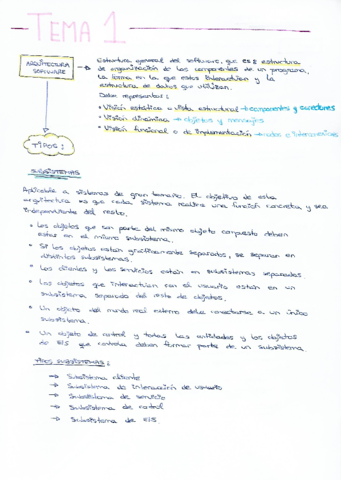 TEMA 1
ARQUITECTURA
SOFTWARE
→ Estructura general del software, que es la estructura
de organización de los componentes de un programa.
La forma en la que estos interactúan y la
estructura de datos que utilizan.
Debe representar:
• Visión estática o vista estructural → componentes y conectores
• Visión dinámica → objetos y mensajes
• Visión funcional o de implementación → nodos e interacciones
TIPOS:
SUBSISTEMAS
Aplicable a sistemas de gran tamaño. El objetivo de esta
arquitectura es que cada sistema realice una función concreta y sea
independiente del resto.
• Los objetos que son parte del mismo objeto compuesto deben
estar en el mismo subsistema.
• Si los objetos están gráficamente separados, se separan en
distintos subsistemas.
• Los clientes y los servicios están en subsistemas separados
• Los objetos que interactúan con el usuario están en un
subsistema separado del resto de objetos.
• Un objeto del mundo real externo debe conectarse a un único
subsistema.
• Un objeto de control y todas las entidades y los objetos
de E/S que controla deben formar parte de un subsistema.
TIPOS SUBSISTEMAS:
→ Subsistema cliente
→ Subsistema de interacción de usuario
→ Subsistema de servicio
→ Subsistema de control
→ Subsistema de E/S